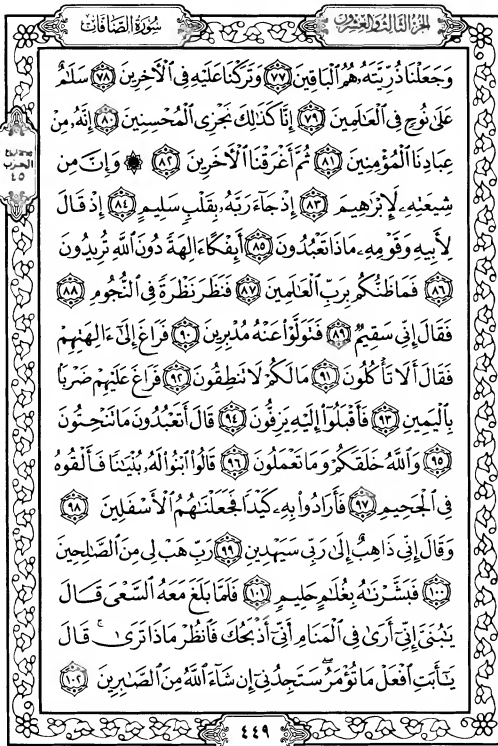 سُورَةُ الصَّافَّاتِ
الجُزْءُ الثَّالِثُ وَالعِشْرُونَ
وَجَعَلْنَا ذُرِّيَّتَهُۥ هُمُ ٱلْبَاقِينَ ۝٧٧ وَتَرَكْنَا عَلَيْهِ فِى ٱلْآخِرِينَ ۝٧٨ سَلَٰمٌ
عَلَىٰ نُوحٍ فِى ٱلْعَٰلَمِينَ ۝٧٩ إِنَّا كَذَٰلِكَ نَجْزِى ٱلْمُحْسِنِينَ ۝٨٠ إِنَّهُۥ مِنْ
عِبَادِنَا ٱلْمُؤْمِنِينَ ۝٨١ ثُمَّ أَغْرَقْنَا ٱلْآخَرِينَ ۝٨٢ ۞ وَإِنَّ مِن
شِيعَتِهِۦ لَإِبْرَٰهِيمَ ۝٨٣ إِذْ جَآءَ رَبَّهُۥ بِقَلْبٍ سَلِيمٍ ۝٨٤ إِذْ قَالَ
لِأَبِيهِ وَقَوْمِهِۦ مَاذَا تَعْبُدُونَ ۝٨٥ أَئِفْكًا ءَالِهَةً دُونَ ٱللَّهِ تُرِيدُونَ
۝٨٦ فَمَا ظَنُّكُم بِرَبِّ ٱلْعَٰلَمِينَ ۝٨٧ فَنَظَرَ نَظْرَةً فِى ٱلنُّجُومِ ۝٨٨
فَقَالَ إِنِّى سَقِيمٌ ۝٨٩ فَتَوَلَّوْا۟ عَنْهُ مُدْبِرِينَ ۝٩٠ فَرَاغَ إِلَىٰٓ ءَالِهَتِهِمْ
فَقَالَ أَلَا تَأْكُلُونَ ۝٩١ مَا لَكُمْ لَا تَنطِقُونَ ۝٩٢ فَرَاغَ عَلَيْهِمْ ضَرْبًۢا
بِٱلْيَمِينِ ۝٩٣ فَأَقْبَلُوٓا۟ إِلَيْهِ يَزِفُّونَ ۝٩٤ قَالَ أَتَعْبُدُونَ مَا تَنْحِتُونَ
۝٩٥ وَٱللَّهُ خَلَقَكُمْ وَمَا تَعْمَلُونَ ۝٩٦ قَالُوا۟ ٱبْنُوا۟ لَهُۥ بُنْيَٰنًا فَأَلْقُوهُ
فِى ٱلْجَحِيمِ ۝٩٧ فَأَرَادُوا۟ بِهِۦ كَيْدًا فَجَعَلْنَٰهُمُ ٱلْأَسْفَلِينَ ۝٩٨
وَقَالَ إِنِّى ذَاهِبٌ إِلَىٰ رَبِّى سَيَهْدِينِ ۝٩٩ رَبِّ هَبْ لِى مِنَ ٱلصَّٰلِحِينَ
۝١٠٠ فَبَشَّرْنَٰهُ بِغُلَٰمٍ حَلِيمٍ ۝١٠١ فَلَمَّا بَلَغَ مَعَهُ ٱلسَّعْىَ قَالَ
يَٰبُنَىَّ إِنِّىٓ أَرَىٰ فِى ٱلْمَنَامِ أَنِّىٓ أَذْبَحُكَ فَٱنظُرْ مَاذَا تَرَىٰ ۚ قَالَ
يَٰٓأَبَتِ ٱفْعَلْ مَا تُؤْمَرُ ۖ سَتَجِدُنِىٓ إِن شَآءَ ٱللَّهُ مِنَ ٱلصَّٰبِرِينَ ۝١٠٢
الحزب
٤٥
٤٤٩